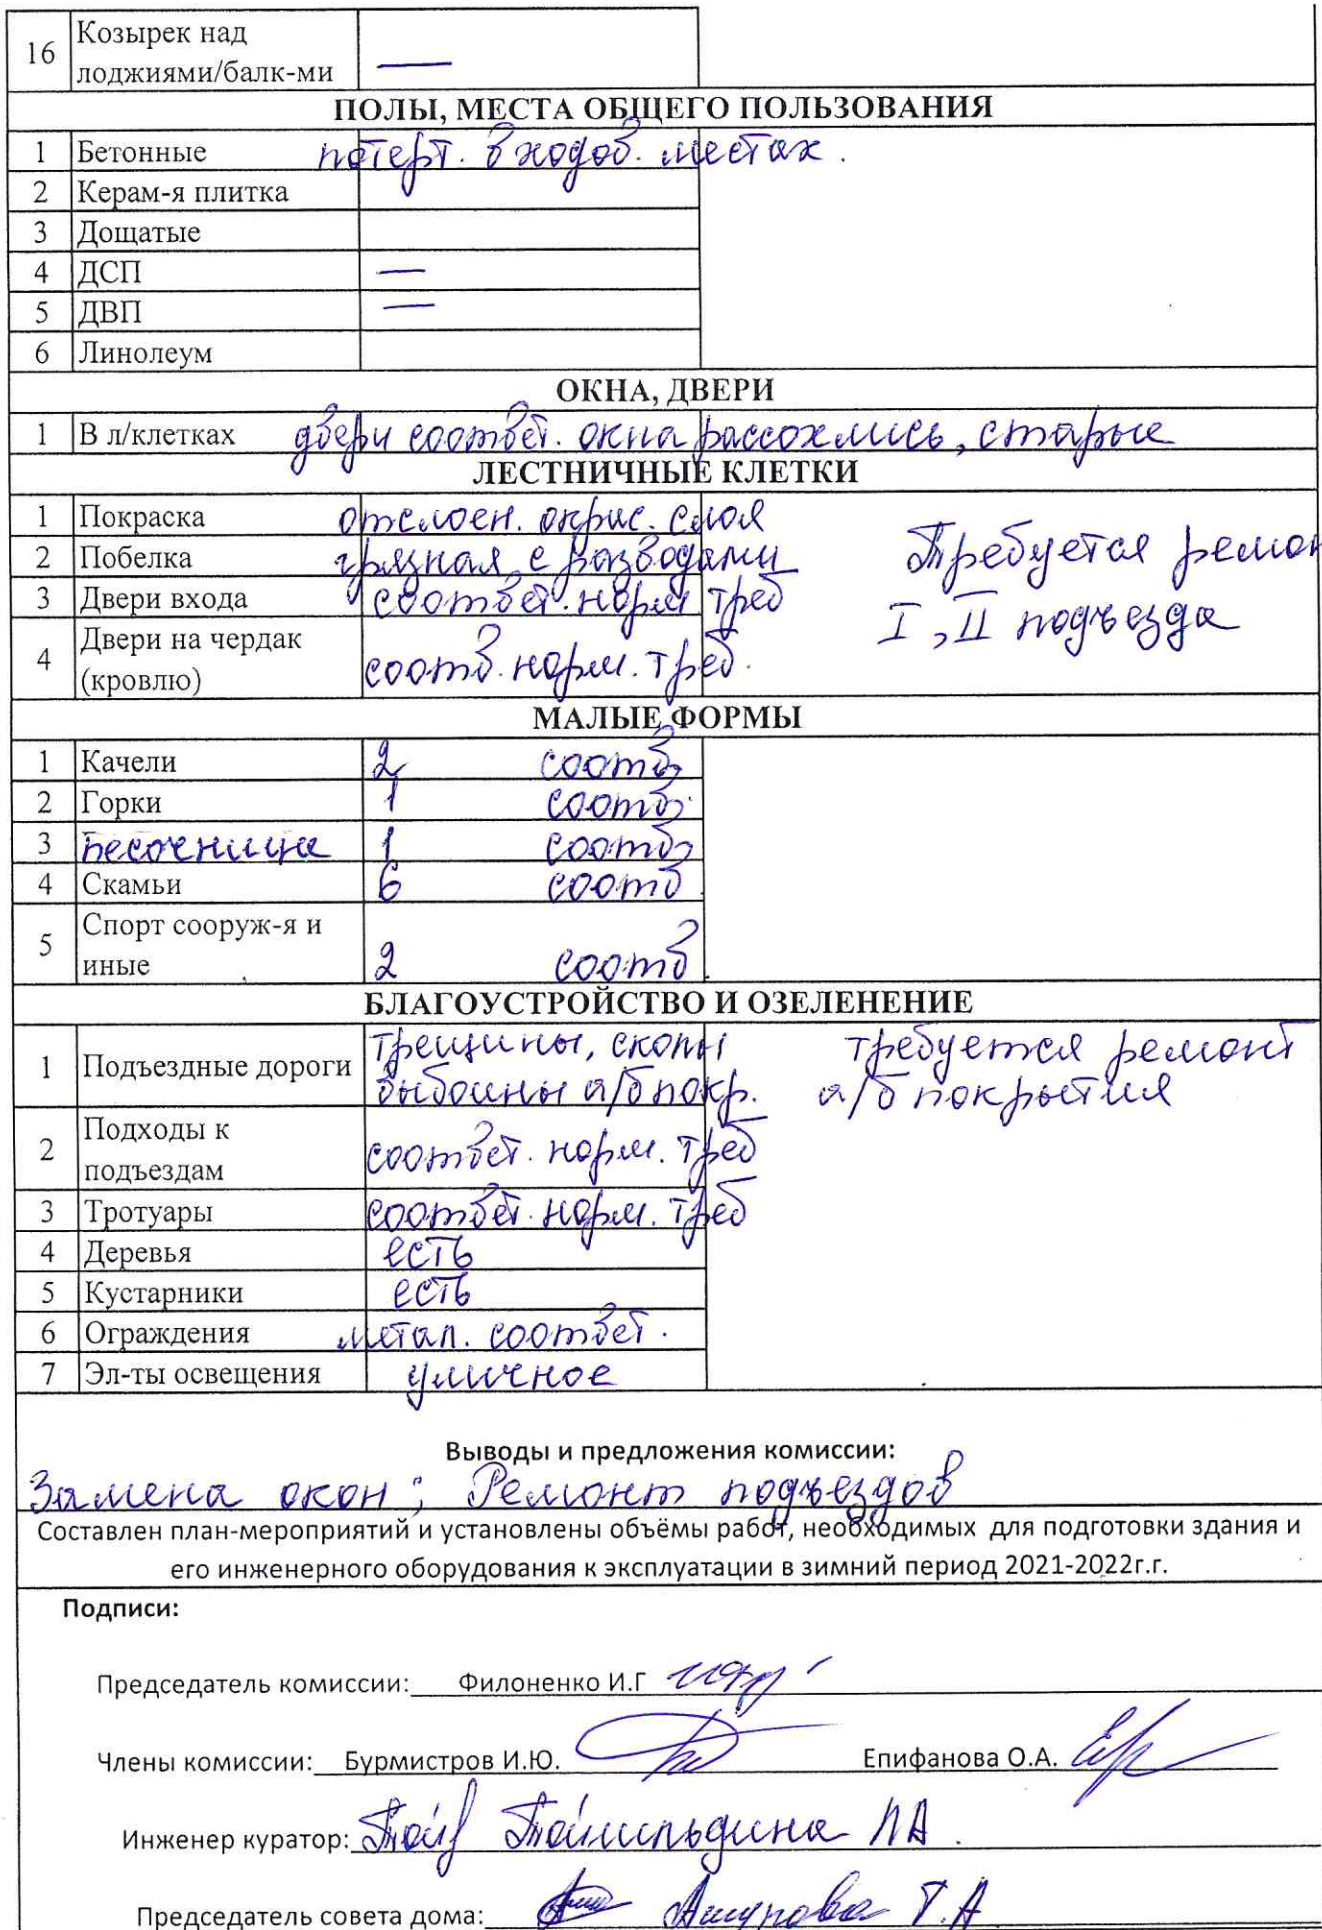 16 Козырек над
лоджиями/балк-ми —
ПОЛЫ, МЕСТА ОБЩЕГО ПОЛЬЗОВАНИЯ
1 Бетонные потерт. в ходов. местах.
2 Керам-я плитка
3 Дощатые
4 ДСП —
5 ДВП —
6 Линолеум
ОКНА, ДВЕРИ
1 В л/клетках двери соответ. окна рассохлись, старые
ЛЕСТНИЧНЫЕ КЛЕТКИ
1 Покраска отслоен. окрас. слоя
2 Побелка грязная с разводами Требуется ремон
3 Двери входа соответ. норм треб I, II подъезда
4 Двери на чердак
(кровлю) соотв. норм. треб.
МАЛЫЕ ФОРМЫ
1 Качели 2 соотв
2 Горки 1 соотв.
3 Песочница 1 соотв
4 Скамьи 6 соотв
5 Спорт сооруж-я и
иные 2 соотв
БЛАГОУСТРОЙСТВО И ОЗЕЛЕНЕНИЕ
1 Подъездные дороги трещины, сколы требуется ремонт
выбоины а/б покр. а/б покрытия
2 Подходы к
подъездам соответ. норм. треб
3 Тротуары соответ. норм. треб
4 Деревья есть
5 Кустарники есть
6 Ограждения метал. соответ.
7 Эл-ты освещения уличное
Выводы и предложения комиссии:
Замена окон; Ремонт подъездов
Составлен план-мероприятий и установлены объёмы работ, необходимых для подготовки здания и
его инженерного оборудования к эксплуатации в зимний период 2021-2022г.г.
Подписи:
Председатель комиссии: Филоненко И.Г
Члены комиссии: Бурмистров И.Ю. Епифанова О.А.
Инженер куратор:
Председатель совета дома: Т.А